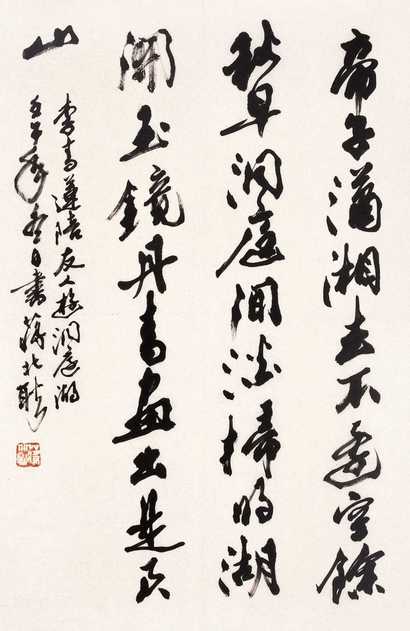 帝子瀟湘去不還空餘
秋草洞庭間淡掃明湖
開玉鏡丹青畫出是君
山
李青蓮陪友人遊洞庭湖
壬子年冬日書蔣北耿